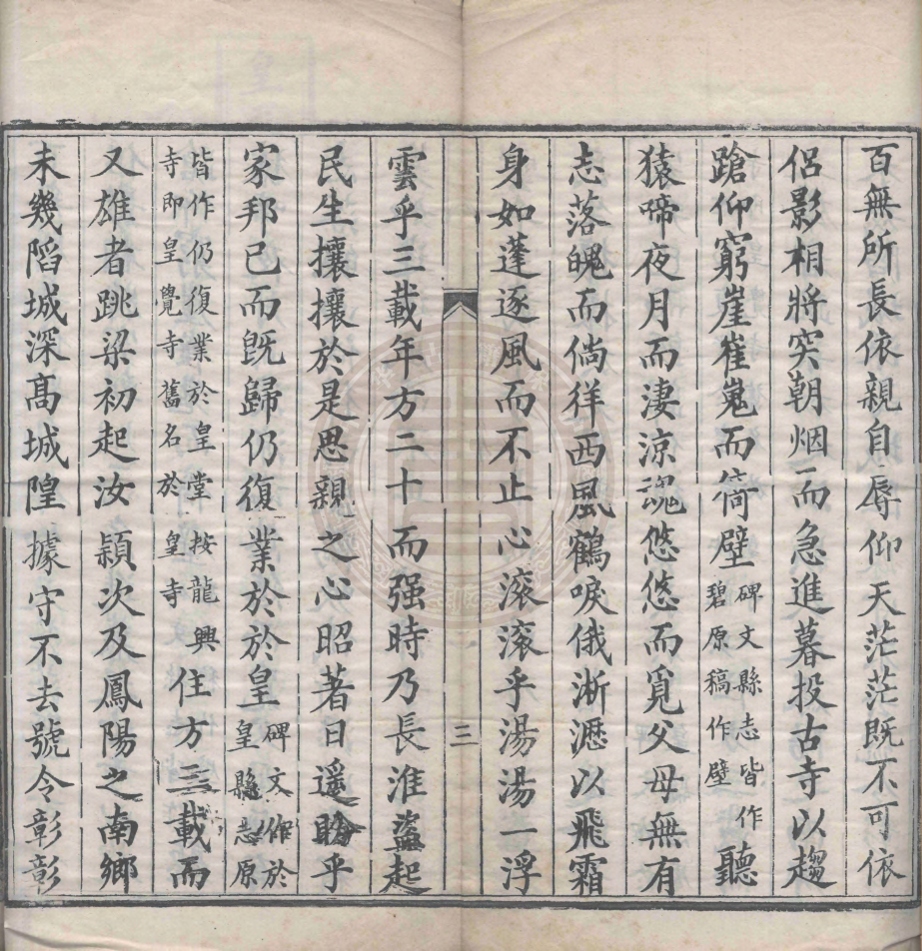 百無所長依親自辱仰天茫茫既不可依
侶影相將突朝烟而急進暮投古寺以趨
蹌仰窮崖崔嵬而倚壁碑文縣志皆作碧原稿作壁聽
猿啼夜月而淒涼魂悠悠而覓父母無有
志落魄而倘徉西風鶴唳俄淅瀝以飛霜
身如蓬逐風而不止心滾滾乎湯湯一浮
三
雲乎三載年方二十而强時乃長淮盜起
民生攘攘於是思親之心昭著日遥盼乎
家邦已而既歸仍復業於於皇碑文作於皇縣志原
皆作仍復業於皇堂按龍興寺即皇覺寺舊名於皇寺住方三載而
又雄者跳梁初起汝潁次及鳳陽之南鄉
未幾陷城深髙城隍據守不去號令彰彰